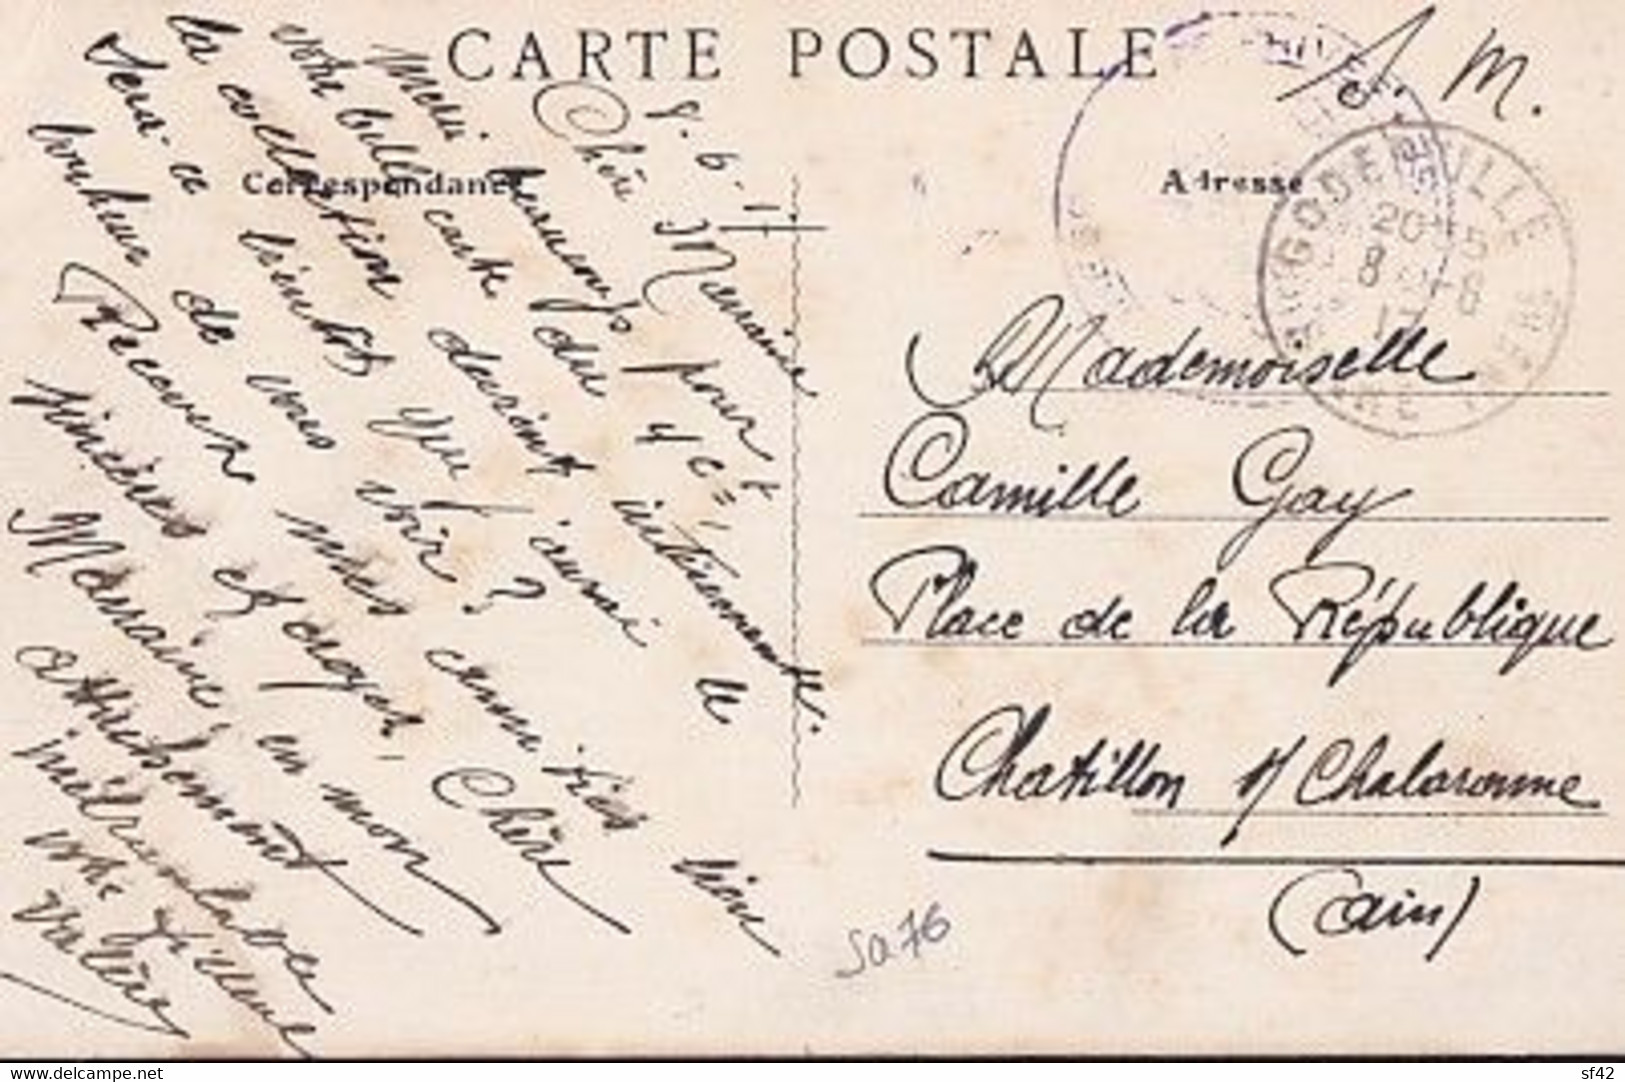 CARTE POSTALE
S. M.
Correspondance
Adresse
8.6.17
Chère Marraine
Merci beaucoup pour
votre belle carte du 4 ct,
la collection devient intéressante.
Sera-ce bientôt que j'aurai le
bonheur de vous voir ?
Recevez mes amitiés bien
sincères et croyez, Chère
Marraine, en mon
attachement
inébranlable
votre filleul
Valère
GODERVILLE
20-15
8 -6
17
Mademoiselle
Camille Gay
Place de la République
Chatillon s/ Chalaronne
(Ain)
Sa 76
www.delcampe.net
sf42